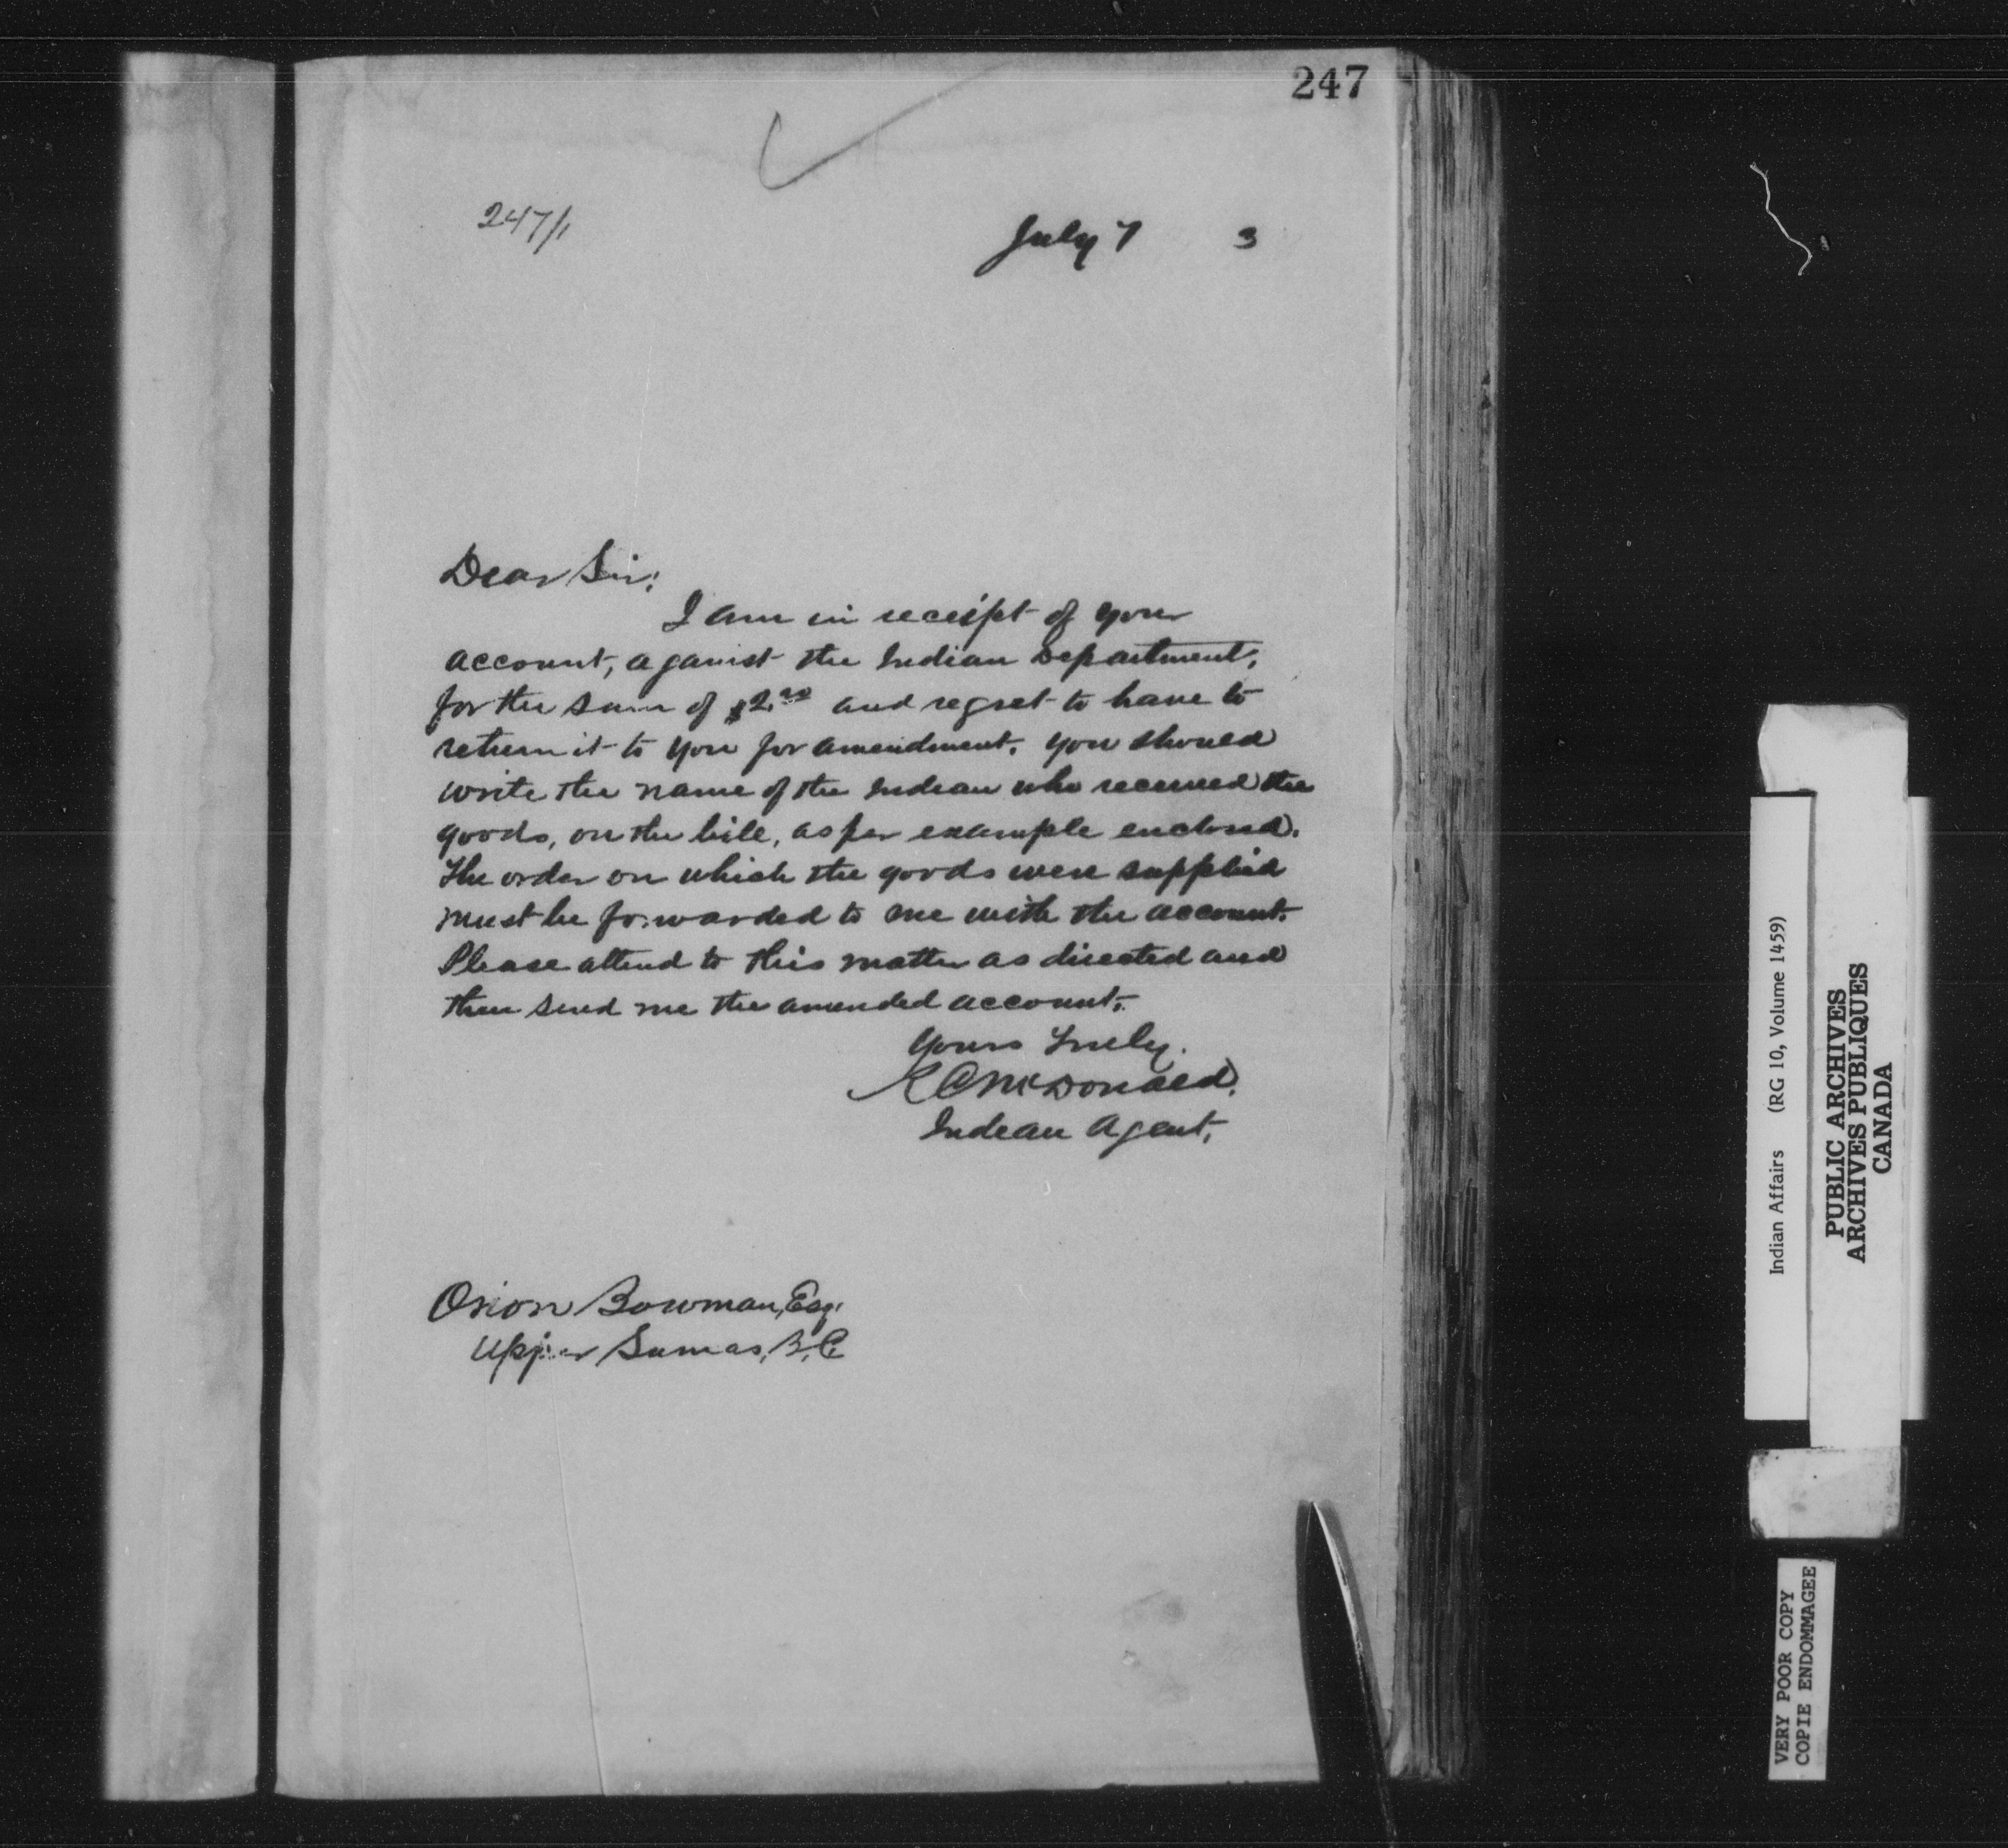 247
247/1
July 7 3
Dear Sir:
I am in receipt of your
account, against the Indian Department,
for the sum of $2.00 and regret to have to
return it to you for amendment. You should
write the name of the Indian who received the
goods, on the bill, as per example enclosed.
The order on which the goods were supplied
must be forwarded to me with the account.
Please attend to this matter as directed and
then send me the amended account.
Yours truly.
R C McDonald.
Indian Agent.
Orion Bowman, Esq.
Upper Sumas, B.C.
Indian Affairs (RG 10, Volume 1459)
PUBLIC ARCHIVES
ARCHIVES PUBLIQUES
CANADA
VERY POOR COPY
COPIE ENDOMMAGEE